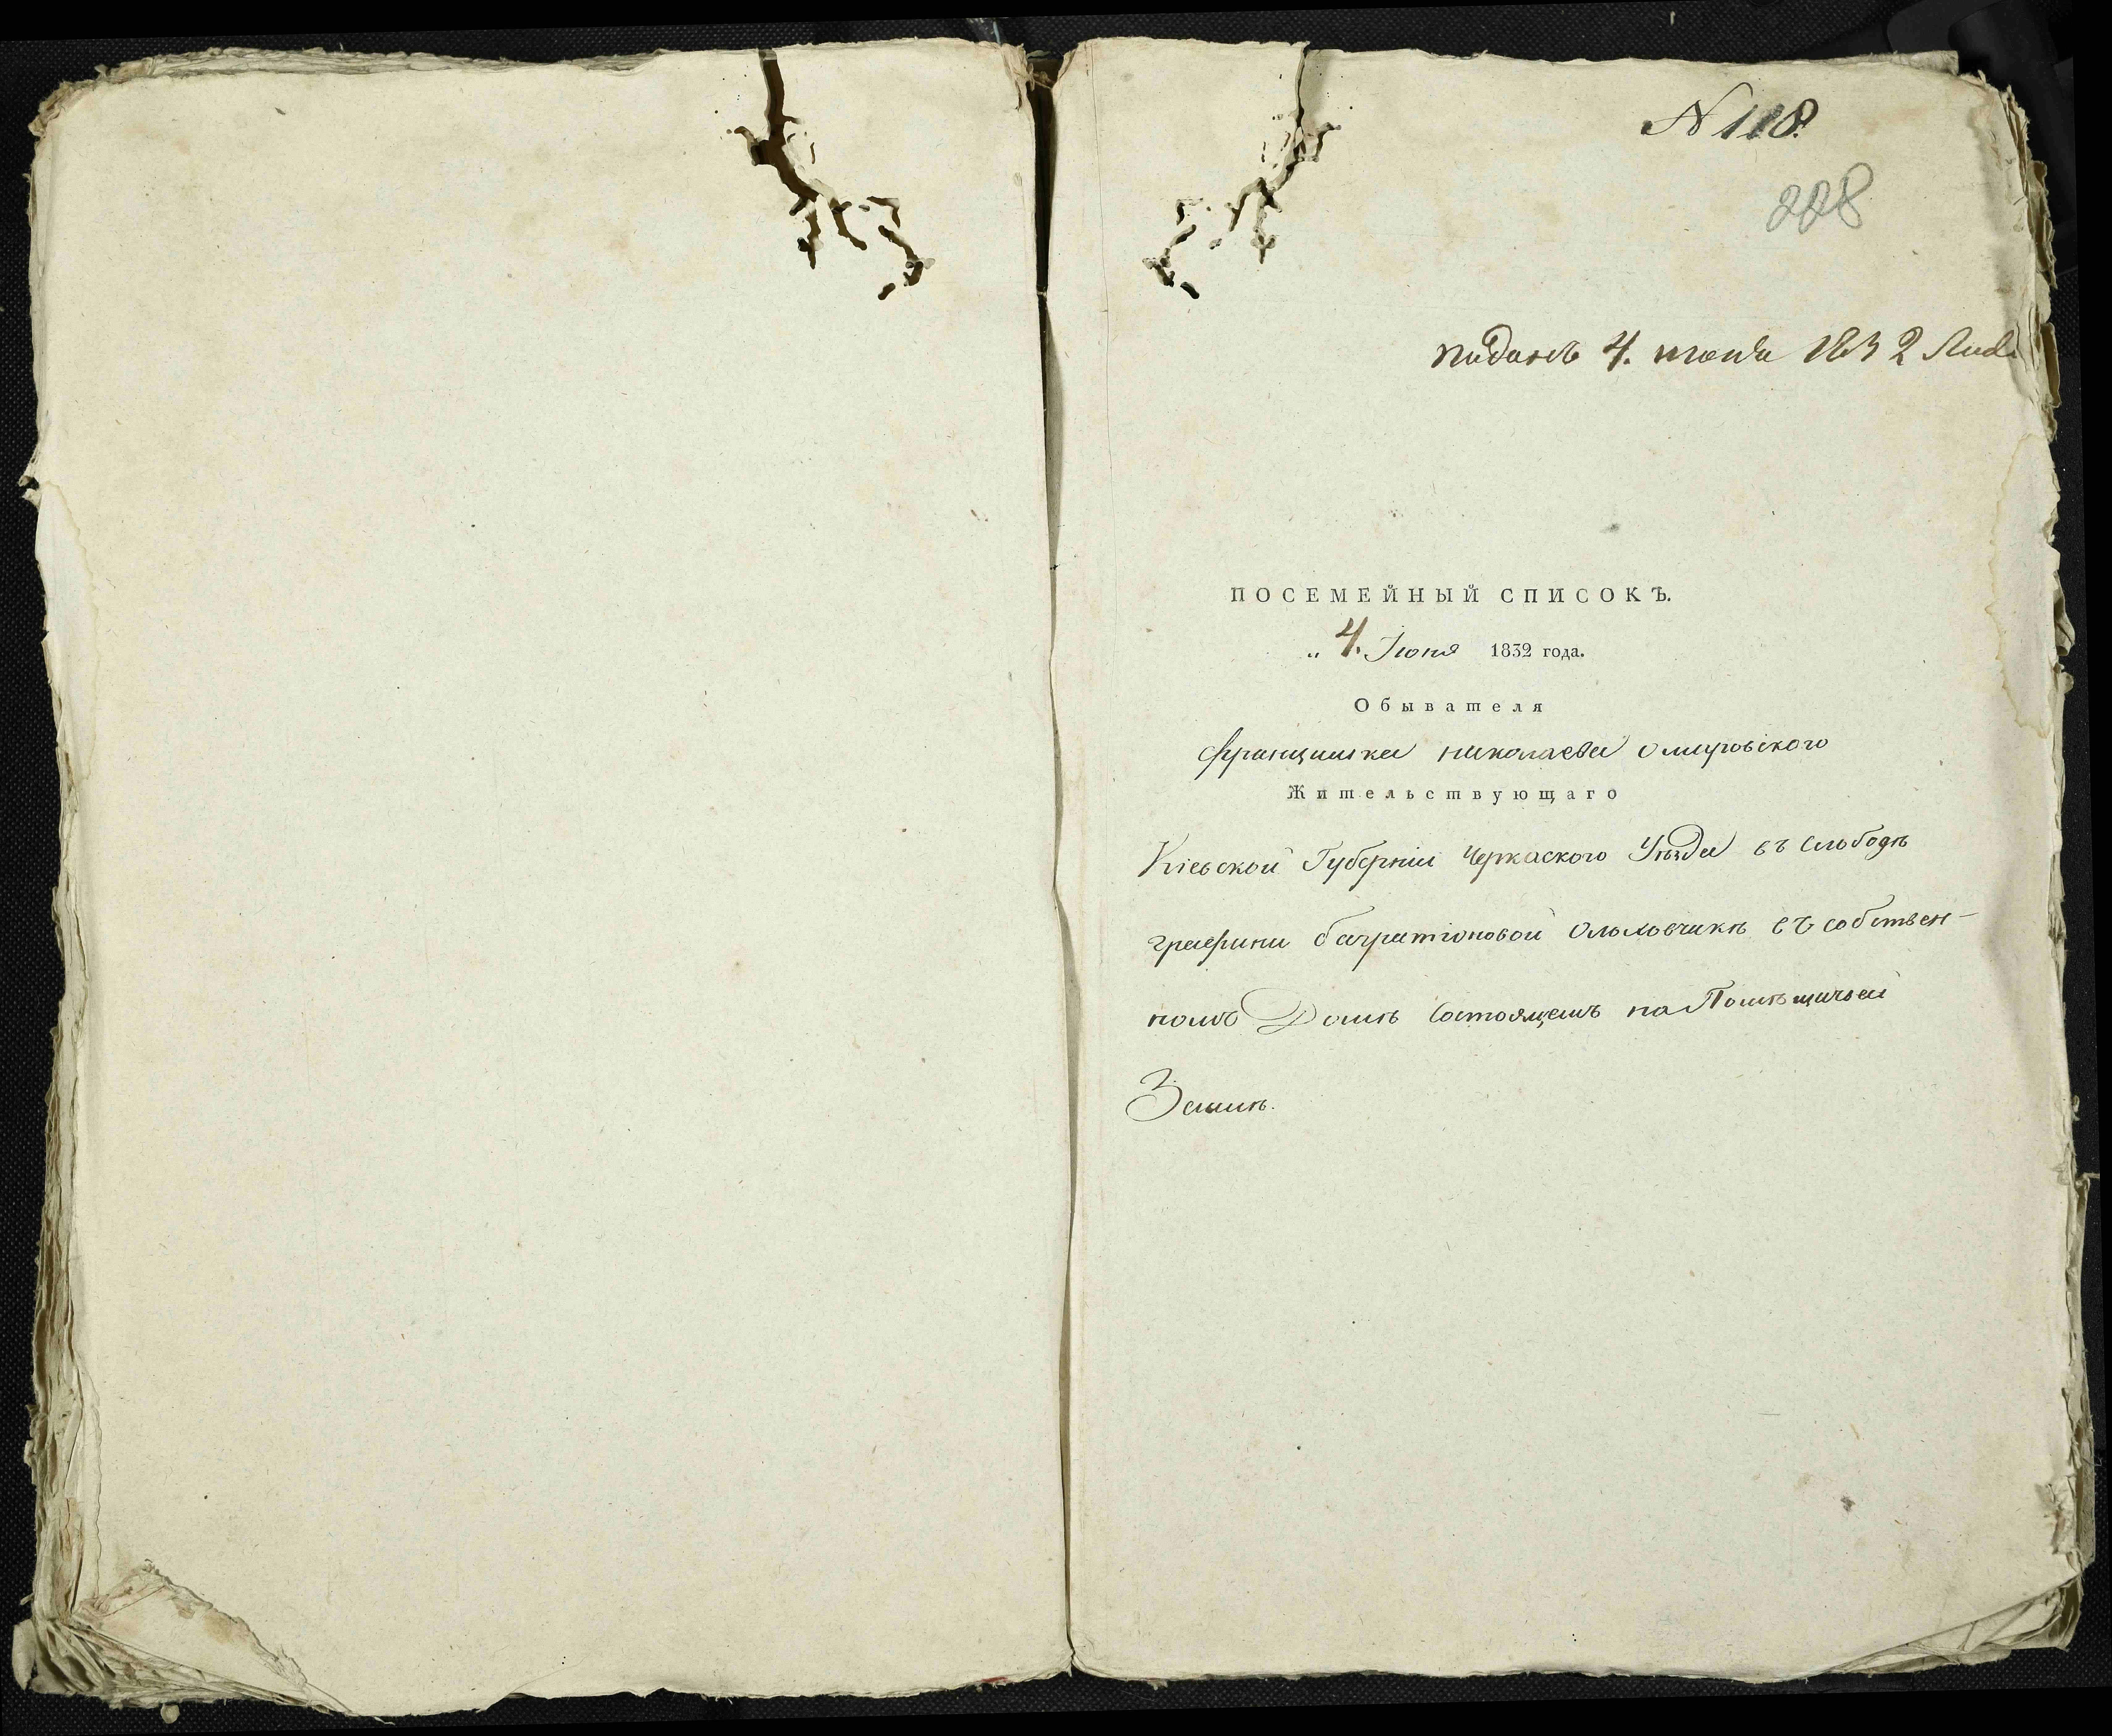 N 118.
228
поданъ 4. июня 1832
ПОСЕМЕЙНЫЙ СПИСОКЪ.
„ 4. Іюня 1832 года.
Обывателя
Францишка николаева
Жительствующаго
Кіевской Губерніи Черкаского Уѣзда въ Слободѣ
графини багратіоновой Ольховчикѣ въ собствен-
номъ Домѣ Состоящемъ на Помѣщичьей
Землѣ.